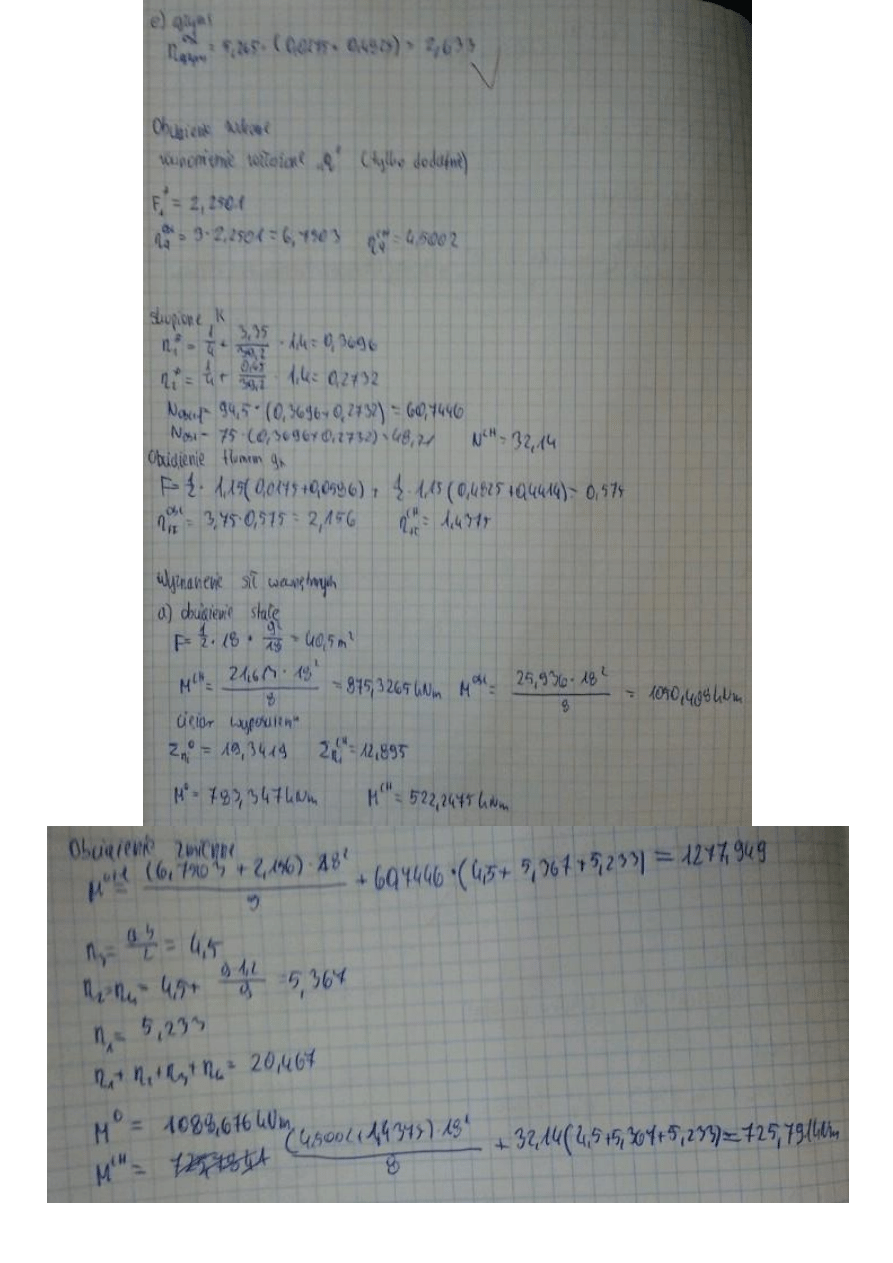 e) gzyms
η gzym = 5,265 · (0,0275 + 0,4925) = 2,633
Obciążenie
równomiernie rozłożone „q" (tylko dodatnie)
F₁⁰ = 2,2501
η q obl = 3 · 2,2501 = 6,7503 η q CH = 4,5002
skupione K
η₁⁰ = 1/4 + 3,35/39,2 · 1,4 = 0,3696
η₂⁰ = 1/4 + 0,65/39,2 · 1,4 = 0,2732
= 94,5 · (0,3696 + 0,2732) = 60,7446
= 75 · (0,3696 + 0,2732) = 48,21 N CH = 32,14
Obciążenie tłumem
F = 1/2 · 1,15 (0,0175 + 0,0596) + 1/2 · 1,15 (0,4825 + 0,4414) = 0,575
= 3,75 · 0,575 = 2,156 = 1,4375
Wyznaczenie sił wewnętrznych
a) obciążenie stałe
F = 1/2 · 18 · 9²/18 = 40,5 m²
M CH = · 18² / 8 = 875,3265 kNm M obl = 25,936 · 18² / 8 = 1050,408 kNm
ciężar wyposażenia
Σ = 19,3419 Σ = 12,895
M⁰ = 783,347 kNm M CH = 522,2475 kNm
Obciążenie zmienne
M obl = (6,7503 + 2,156) · 18² / + 60,7446 · (4,5 + 5,367 + 5,233) = 1277,949
η₃ = = 4,5
η₂ = η₄ = 4,5 + = 5,367
η₁ = 5,233
= 20,467
M⁰ = 1088,676 kNm
M CH = (4,5002 + 1,4375) · 18² / 8 + 32,14 (4,5 + 5,367 + 5,233) = 725,791 kNm